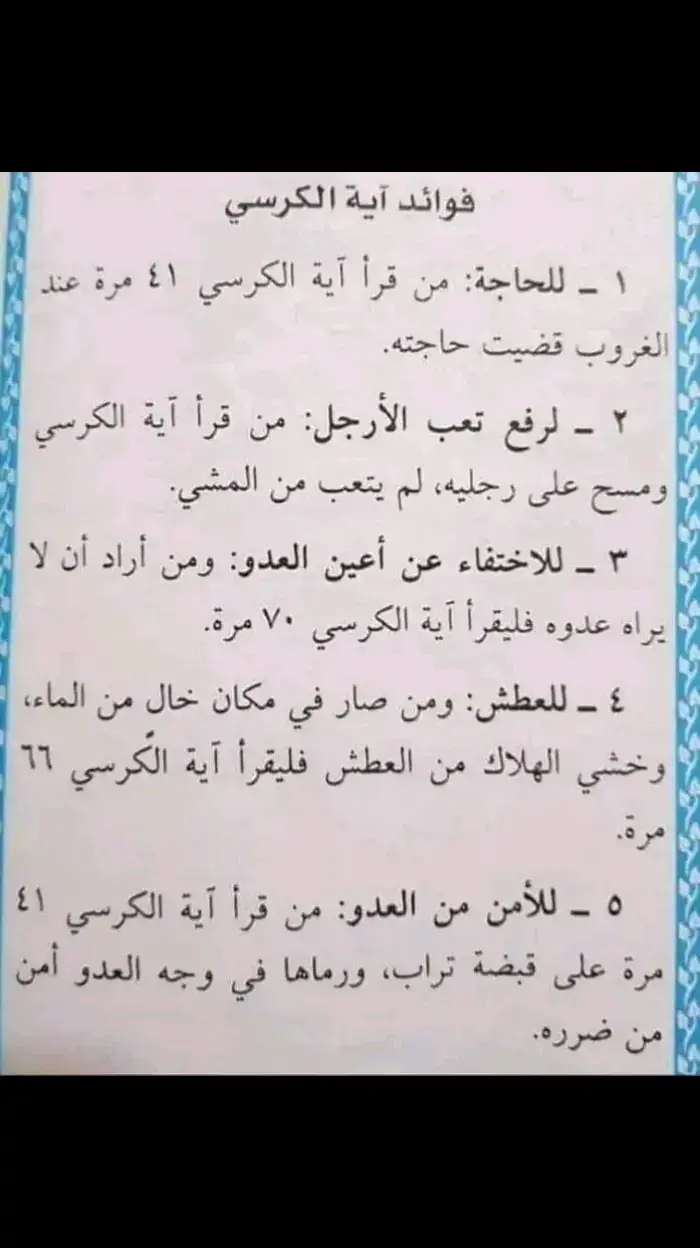 فوائد آية الكرسي
١ ـ للحاجة: من قرأ آية الكرسي ٤١ مرة عند
الغروب قضيت حاجته.
٢ ـ لرفع تعب الأرجل: من قرأ آية الكرسي
ومسح على رجليه، لم يتعب من المشي.
٣ ـ للاختفاء عن أعين العدو: ومن أراد أن لا
يراه عدوه فليقرأ آية الكرسي ٧٠ مرة.
٤ ـ للعطش: ومن صار في مكان خال من الماء،
وخشي الهلاك من العطش فليقرأ آية الكرسي ٦٦
مرة.
٥ ـ للأمن من العدو: من قرأ آية الكرسي ٤١
مرة على قبضة تراب، ورماها في وجه العدو أمن
من ضرره.